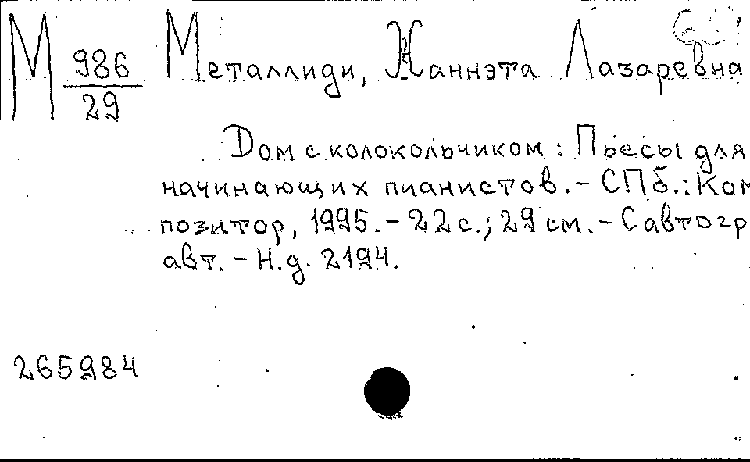 М 986/29 Металлиди, Жаннэта Лазаревна
Дом с колокольчиком : Пьесы для
начинающих пианистов. - СПб. : Ком
позитор, 1995. - 22 с. ; 29 см. - С автогр
авт. - Н.д. 2194.
265984